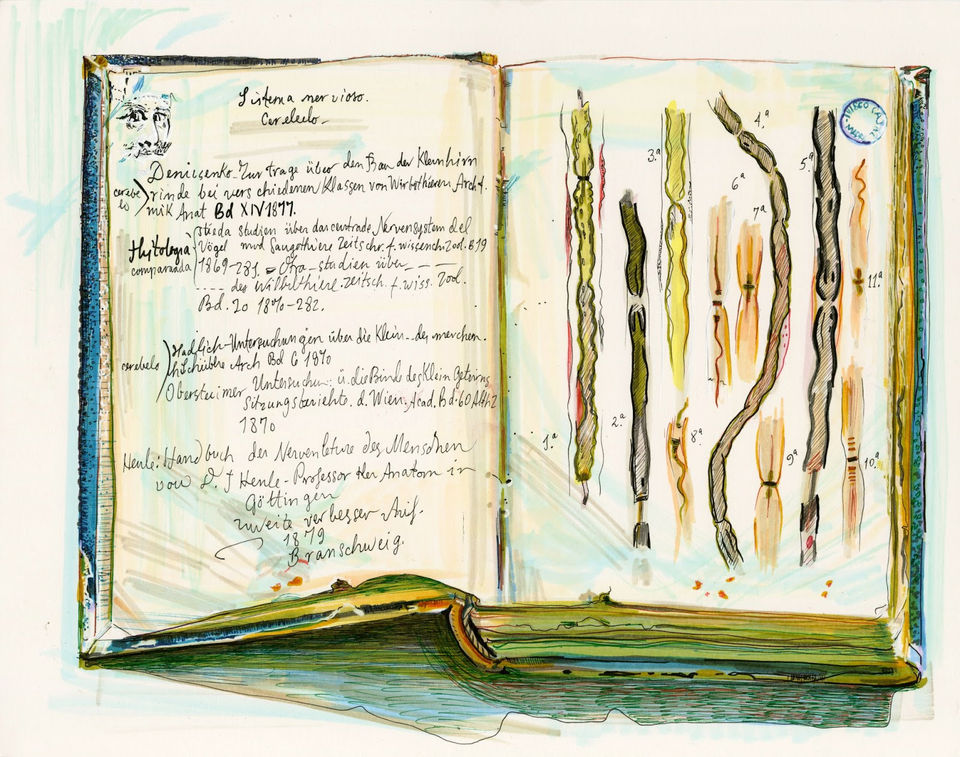 Sistema nervioso.
Cerelelo-
Denissenko-Zur trage über den Bau der Kleinhirn
cerebe
lo
rinde bei vers chiedenen Klassen von Wirbelthieren Arch f.
mik Anat Bd XIV 1877.
Histologia
comparada
Stieda studien über das centrale Nervensystem del
Vögel und Saugethiere Zeitschr. f. wissench. Zool. B 19
1869-281. = Ora - studien über
des Wilbelthiere. zeitsch. f. wiss. Zod.
Bd. 20 1870-282.
cerebelo
Hadlich-Untersuchungen über die Klein-des menchen.
Arch Bd 6 1870
Obersteimer Untersuchun: ü. die Rinde des Klein
Sitzungsberichte. d. Wien. Acad. Bd. 60 Abt 2
1870
Henle: Handbuch des Nervenleture des Menschen
von D. J Henle-Professor der Anatom in
Göttingen
zweite verbesser Auf.
1879
Branschweig.
1ª
2ª
3ª
4ª
5ª
6ª
7ª
8ª
9ª
10ª
11ª